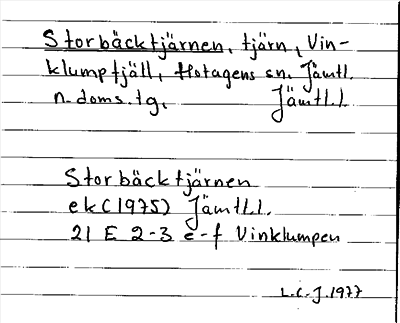 Storbäcktjärnen, tjärn, Vin-
klumpfjäll, Hotagens sn. Jämtl.
n. doms. tg. Jämtl. l.
Storbäcktjärnen
ek (1975) Jämtl. l.
21 E 2-3 e-f Vinklumpen
L.C.J. 1977